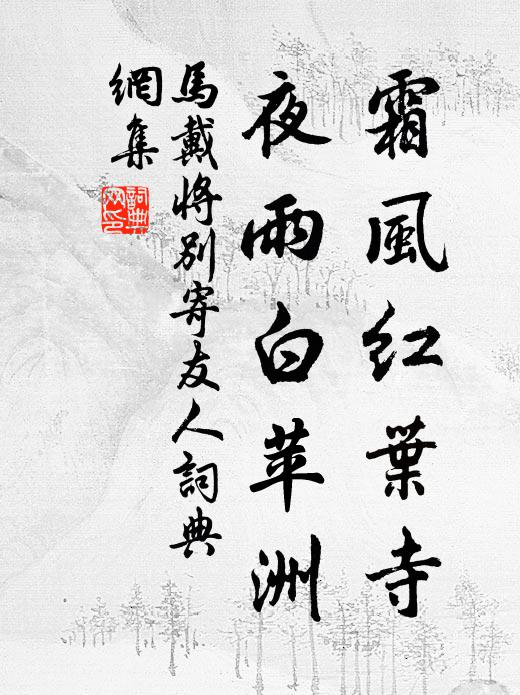 霜風紅葉寺
夜雨白苹洲
馬戴將別寄友人詞典
網集
詞典网印